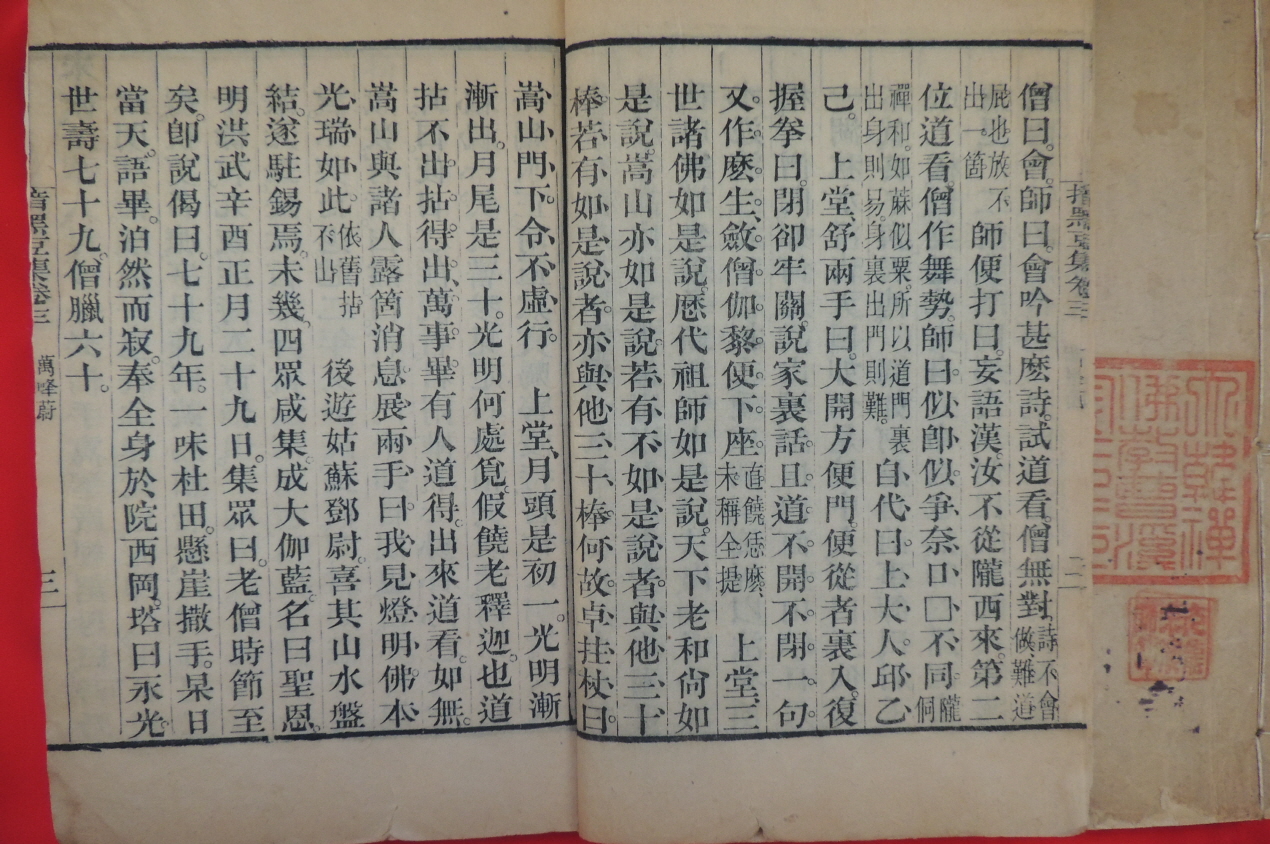 僧曰。會。師曰。會吟甚麽詩。試道看。僧無對。詩不會做難道
屁也族不出一箇師便打曰。妄語漢。汝不從隴西來。第二
位道看。僧作舞勢。師曰。似卽似。爭奈口□不同。隴侗
禪和。如蘇似粟。所以道門裏出身則易。身裏出門則難。自代曰。上大人。邱乙
己。上堂。舒兩手曰。大開方便門。便從者裏入。復
握拳曰。閉卻牢關。說家裏話。且道。不開不閉一句
又作麽生。斂僧伽黎。便下座。直饒恁麽未稱全提上堂。三
世諸佛如是說。歷代祖師如是說。天下老和尙如
是說。嵩山亦如是說。若有不如是說者。與他三十
棒。若有如是說者。亦與他三十棒。何故。卓拄杖曰。
嵩山門下。令不虛行。上堂。月頭是初一。光明漸
漸出。月尾是三十。光明何處覓。假饒老釋迦。也道
拈不出。拈得出。萬事畢。有人道得。出來道看。如無。
嵩山與諸人露箇消息。展兩手曰。我見燈明佛。本
光瑞如此。依舊拈不出後遊姑蘇鄧尉。喜其山水盤
結。遂駐錫焉。未幾。四眾咸集。成大伽藍。名曰聖恩。
明洪武辛酉正月二十九日。集眾曰。老僧時節至
矣。卽說偈曰。七十九年。一味杜田。懸崖撒手。杲日
當天。語畢。泊然而寂。奉全身於院西岡。塔曰永光。
世壽七十九。僧臘六十。
揞黑豆集卷三
揞黑豆集卷三 萬峰蔚 三